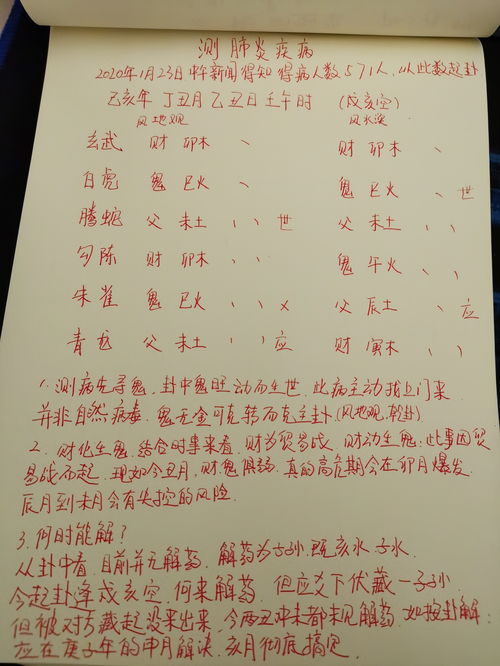 测肺炎疾病
2020年1月23日中午新闻得知得病人数571人,以此数起卦
己亥年 丁丑月 乙丑日 壬午时 (戌亥空)
风地观 风水涣
玄武 财 卯木 、 财 卯木 、
白虎 鬼 巳火 、 鬼 巳火 、世
腾蛇 父 未土 、、世 父 未土 、、
勾陈 财 卯木 、、 鬼 午火 、、
朱雀 鬼 巳火 、、x 父 辰土 、应
青龙 父 未土 、、应 财 寅木 、、
1. 测病先寻鬼,卦中鬼旺动而生世,此病主动找上门来
并非自然病毒,鬼无金可克转而克主卦(风地观,乾卦).
2. 财化生鬼,结合时事来看,财为贸易战,财动生鬼:此事因贸
易战而起,现如今丑月,财鬼俱弱,真的高危期会在卯月爆发,
辰月到未月会有失控的风险.
3. 何时能解?
从卦中看,目前并无解药,解药为子孙,既亥水、子水.
今起卦逢戌亥空,何来解药,但应爻下伏藏一子孙
但被对方藏起没来出来,今两丑冲未都未见解药,如按卦解:
应在庚子年的申月解决,亥月彻底搞定